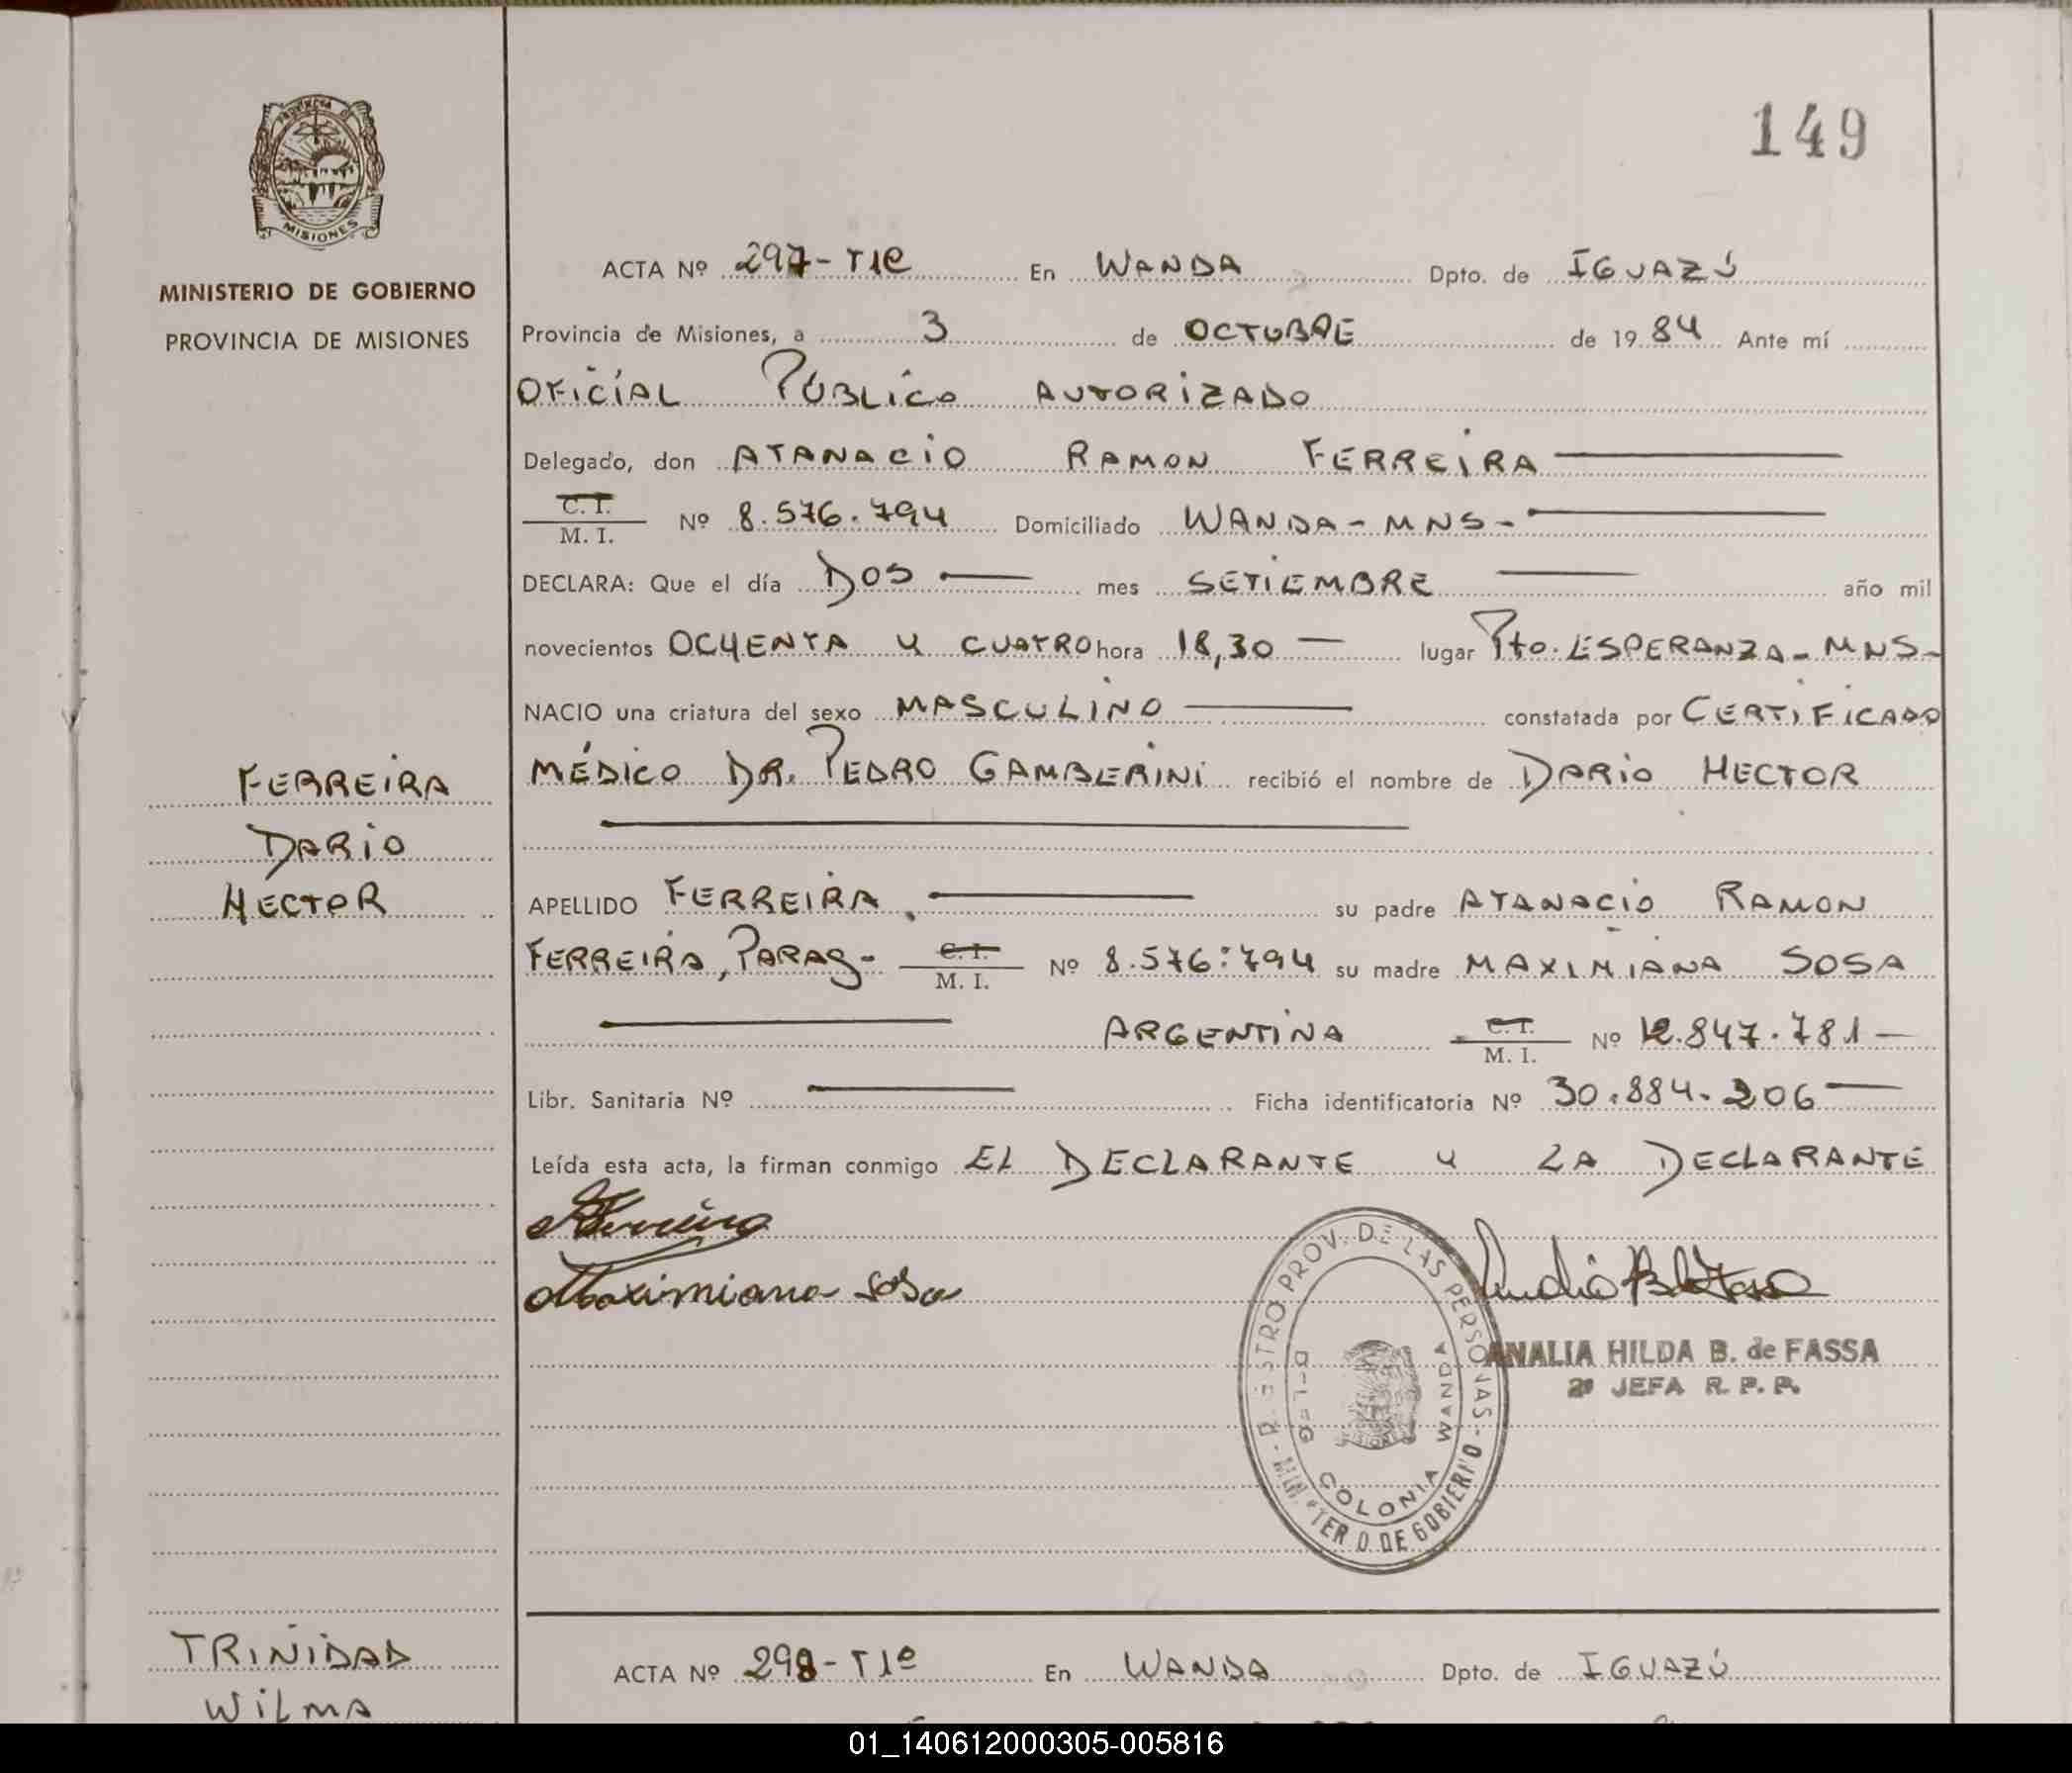 PROVINCIA D
MISIONES
MINISTERIO DE GOBIERNO
PROVINCIA DE MISIONES
149
ACTA Nº 297-T1º En WANDA Dpto. de IGUAZÚ
Provincia de Misiones, a 3 de OCTUBRE de 1984 Ante mí
OFICIAL PÚBLICO AUTORIZADO
Delegado, don ATANACIO RAMON FERREIRA
C. I. M. I. Nº 8.576.794 Domiciliado WANDA-MNS-
DECLARA: Que el día DOS mes SETIEMBRE año mil
novecientos OCHENTA Y CUATRO hora 18,30 lugar Pto. ESPERANZA-MNS-
NACIO una criatura del sexo MASCULINO constatada por CERTIFICADO
MÉDICO DR. PEDRO GAMBERINI recibió el nombre de DARIO HECTOR
FERREIRA
DARIO
HECTOR
APELLIDO FERREIRA su padre ATANACIO RAMON
FERREIRA, PARAG- C. I. M. I. Nº 8.576.794 su madre MAXIMIANA SOSA
ARGENTINA C. I. M. I. Nº 12.847.781-
Libr. Sanitaria Nº Ficha identificatoria Nº 30.884.206
Leída esta acta, la firman conmigo EL DECLARANTE Y LA DECLARANTE
Maximiana Sosa
PROV. DE LAS PERSONAS
COLONIA WANDA
DE GOBIERNO
ANALIA HILDA B. de FASSA
JEFA R. P. P.
TRINIDAD
WILMA
ACTA Nº 298-T1º En WANDA Dpto. de IGUAZÚ
01_140612000305-005816